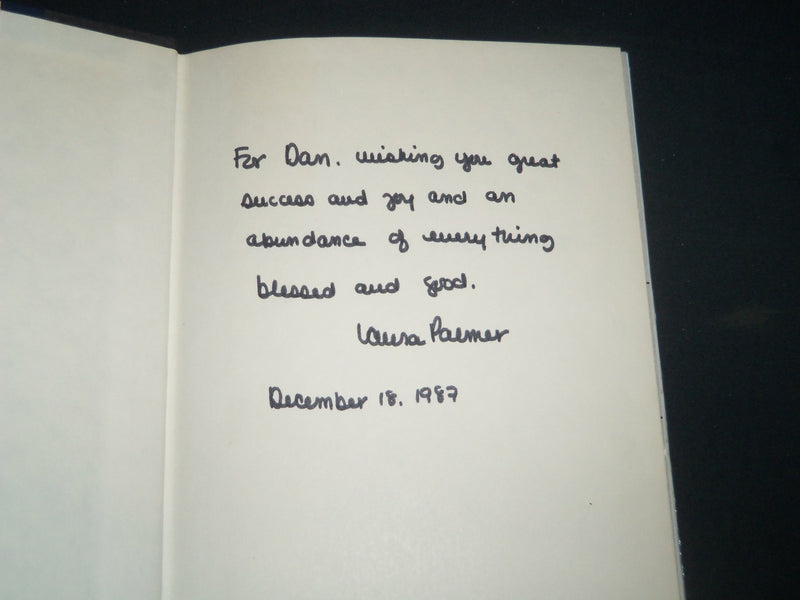 For Dan. wishing you great
success and joy and an
abundance of everything
blessed and good.
Laura Palmer
December 18. 1987